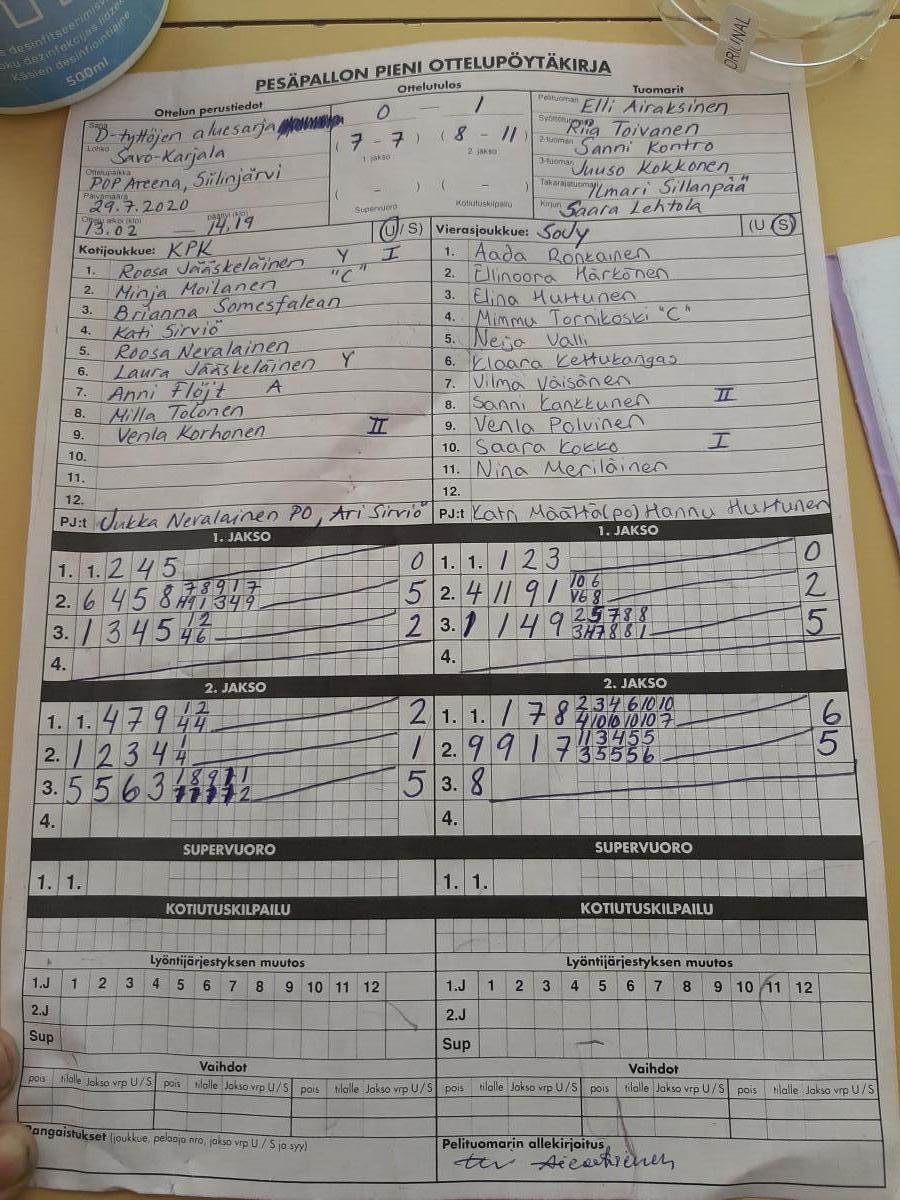 500ml
ORIGINAL
PESÄPALLON PIENI OTTELUPÖYTÄKIRJA
Ottelun perustiedot
Sarja D-tyttöjen aluesarja
Lohko Savo-Karjala
Ottelupaikka POP Areena, Siilinjärvi
Päivämäärä 29.7.2020
Ottelu alkoi (klo) 13.02 — päättyi (klo) 14.19
Ottelutulos
0 — 1
(7 - 7) (8 - 11)
1. jakso 2. jakso
( - ) ( - )
Supervuoro Kotiutuskilpailu
Tuomarit
Pelituomari Elli Airaksinen
Riia Toivanen
2-tuomari Sanni Kontro
3-tuomari Juuso Kokkonen
Takarajatuomari Ilmari Sillanpää
Kirjuri Saara Lehtola
Kotijoukkue: KPK (U/S)
1. Roosa Jääskeläinen Y I
2. Minja Moilanen "C"
3. Brianna Somesfalean
4. Kati Sirviö
5. Roosa Nevalainen
6. Laura Jääskeläinen Y
7. Anni Flöjt A
8. Milla Tolonen
9. Venla Korhonen II
10.
11.
12.
PJ:t Jukka Nevalainen PO, Ari Sirviö
Vierasjoukkue: SoJy (U/S)
1. Aada Ronkainen
2. Ellinoora Härkönen
3. Elina Hurtunen
4. Mimmu Tornikoski "C"
5. Neija Valli
6. Klaara Kettukangas
7. Vilma Väisänen
8. Sanni Kankkunen II
9. Venla Polvinen
10. Saara Kokko I
11. Nina Meriläinen
12.
PJ:t Katri Määttä (po) Hannu Hurtunen
1. JAKSO
1. 1. 2 4 5 0
2. 6 4 5 8 5
3. 1 3 4 5 12 46 2
4.
1. JAKSO
1. 1. 1 2 3 0
2. 4 11 9 1 2
3. 1 1 4 9 5
4.
2. JAKSO
1. 1. 4 7 9 12 44 2
2. 1 2 3 4 1 4 1
3. 5 5 6 3 5
4.
2. JAKSO
1. 1. 1 7 8 6
2. 9 9 1 7 5
3. 8
4.
SUPERVUORO
1. 1.
SUPERVUORO
1. 1.
KOTIUTUSKILPAILU
KOTIUTUSKILPAILU
Lyöntijärjestyksen muutos
1.J 1 2 3 4 5 6 7 8 9 10 11 12
2.J
Sup
Lyöntijärjestyksen muutos
1.J 1 2 3 4 5 6 7 8 9 10 11 12
2.J
Sup
Vaihdot
pois tilalle Jakso vrp U/S pois tilalle Jakso vrp U/S pois tilalle Jakso vrp U/S
Vaihdot
pois tilalle Jakso vrp U/S pois tilalle Jakso vrp U/S pois tilalle Jakso vrp U/S
Rangaistukset (joukkue, pelaaja nro, jakso vrp U / S ja syy)
Pelituomarin allekirjoitus